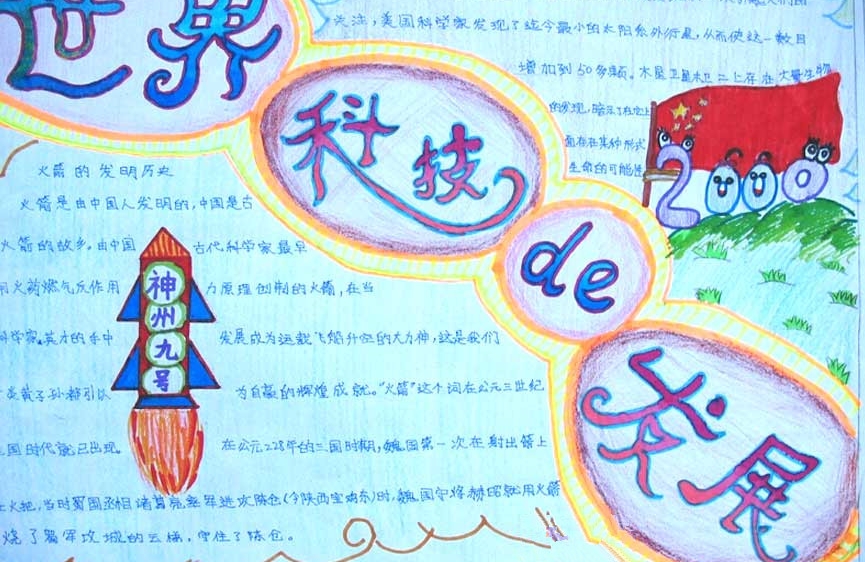 世界
科技
de
发展
关注，美国科学家发现了迄今最小的太阳系外行星，从而使这一数目
增加到50多颗。木星卫星木卫二上存在大量生物
的发现，暗示了在它上
面存在某种形式
生命的可能性
2000
火箭的发明历史
火箭是由中国人发明的，中国是古
火箭的故乡。由中国古代科学家最早
用火药燃气反作用力原理创制的火箭，在当
科学家。英才的手中发展成为运载飞船升空的大力神，这是我们
炎黄子孙都引以为自豪的辉煌成就。“火箭”这个词在公元三世纪
三国时代就已出现。在公元228年的三国时期，魏国第一次在射出箭上
火把，当时蜀国丞相诸葛亮率军进攻陈仓(今陕西宝鸡东)时，魏国守将郝昭就用火箭
烧了蜀军攻城的云梯，守住了陈仓。
神州九号